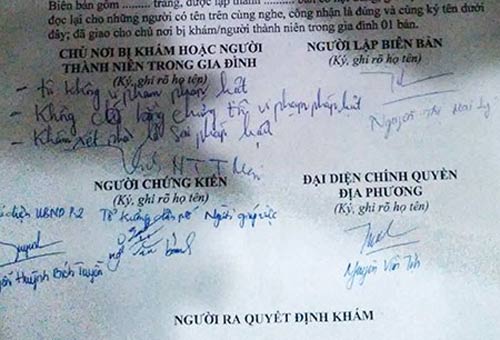 Biên bản gồm ......... trang, được lập thành
đọc lại cho những người có tên trên cùng nghe, công nhận là đúng và cùng ký tên dưới
đây; đã giao cho chủ nơi bị khám/người thành niên trong gia đình 01 bản.
CHỦ NƠI BỊ KHÁM HOẶC NGƯỜI
THÀNH NIÊN TRONG GIA ĐÌNH
(Ký, ghi rõ họ tên)
NGƯỜI LẬP BIÊN BẢN
(Ký, ghi rõ họ tên)
- Tôi không vi phạm pháp luật
- Không có bằng chứng tôi vi phạm pháp luật
- Khám xét nhà là sai pháp luật
NGƯỜI CHỨNG KIẾN
(Ký, ghi rõ họ tên)
ĐẠI DIỆN CHÍNH QUYỀN
ĐỊA PHƯƠNG
(Ký, ghi rõ họ tên)
diện UBND P2 Tổ trưởng dân phố Người giúp việc
Huỳnh Bích Tuyền
Nguyễn Văn
NGƯỜI RA QUYẾT ĐỊNH KHÁM